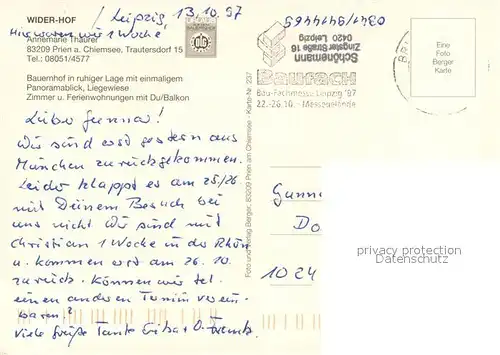 WIDER-HOF
Leipzig, 13.10.97
Hier waren wir 1 Woche
Annemarie Thaurer
83209 Prien a. Chiemsee, Trautersdorf 15
Tel.: 08051/4577
DLG
Bauernhof in ruhiger Lage mit einmaligem
Panoramablick, Liegewiese
Zimmer u. Ferienwohnungen mit Du/Balkon
Lieber Gunnar!
Wir sind erst gestern aus
München zurückgekommen.
Leider klappt es am 25/26
mit Deinem Besuch bei
uns nicht. Wir sind mit
Christian 1 Woche in der Rhön
u. kommen erst am 26.10.
zurück. Können wir tel.
einen anderen Termin verein-
baren?
Viele Grüße Tante
Foto und Verlag Berger, 83209 Prien am Chiemsee - Karte-Nr. 237
Schönemann
Zingster Straße 16
0420 Leipzig
Baufach
Bau-Fachmesse Leipzig '97
22.-26.10. - Messegelände
Eine
Foto
Berger
Karte
Gunn
Do
1024
privacy protection
Datenschutz